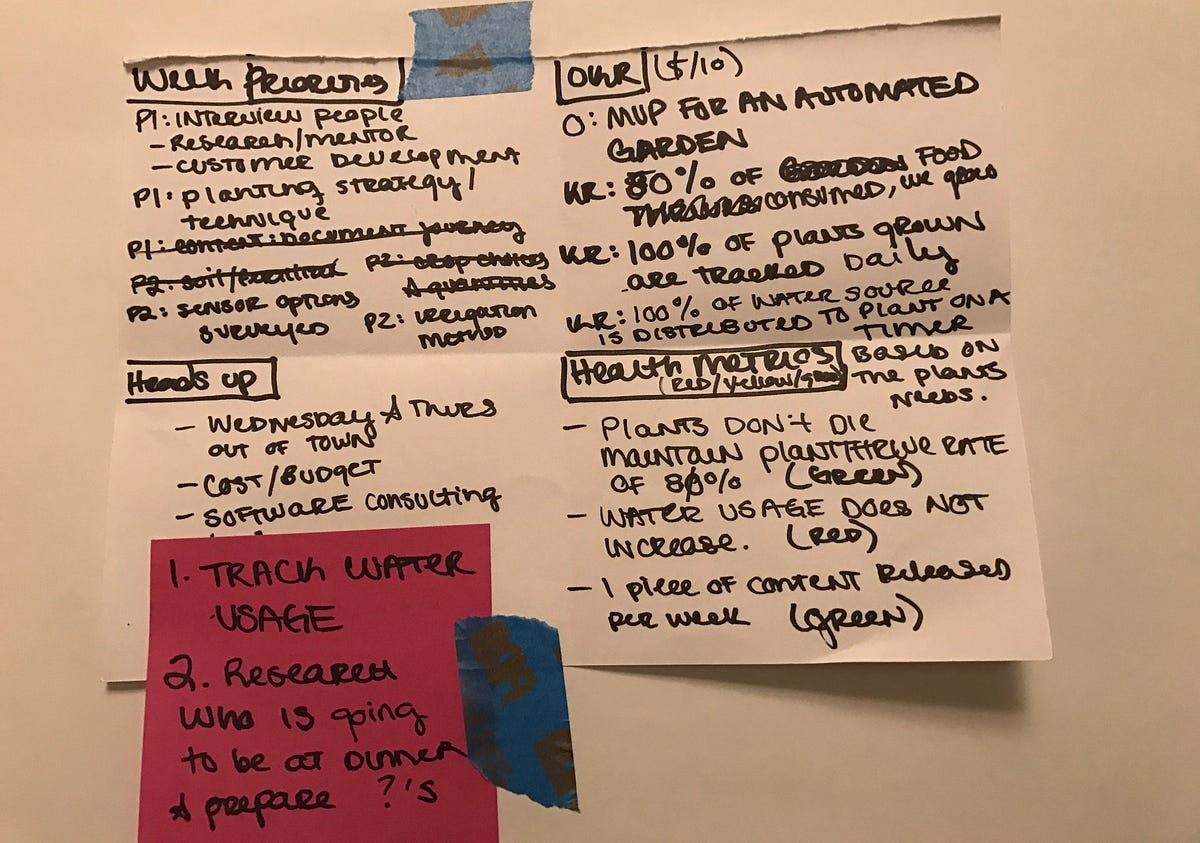 Week Priorities
P1: INTERVIEW PEOPLE
- RESEARCH/MENTOR
- CUSTOMER DEVELOPMENT
P1: planting strategy/
technique
P1: CONTENT: DOCUMENT journey
P2: soil/
P2: SENSOR OPTIONS
SURVEYED
P2: crop choices
& quantities
P2: IRRIGATION
METHOD
OKR ($/10)
O: MVP FOR AN AUTOMATED
GARDEN
KR: 80% OF FOOD
CONSUMED, we grow
KR: 100% OF PLANTS GROWN
are TRACKED Daily
KR: 100% OF WATER SOURCE
IS DISTRIBUTED TO PLANT ON A
TIMER
BASED ON
The plants
NEEDS.
Heads up
- WEDNESDAY & THURS
OUT OF TOWN
- COST/BUDGET
- SOFTWARE consulting
Health METRICS
(RED/Yellow/green)
- PLANTS DON'T DIE
MAINTAIN PLANT THRIVE RATE
OF 80% (GREEN)
- WATER USAGE DOES NOT
INCREASE. (RED)
- 1 piece OF CONTENT Released
per week (GREEN)
1. TRACK WATER
USAGE
2. Research
Who IS going
to be at DINNER
& prepare ?'s